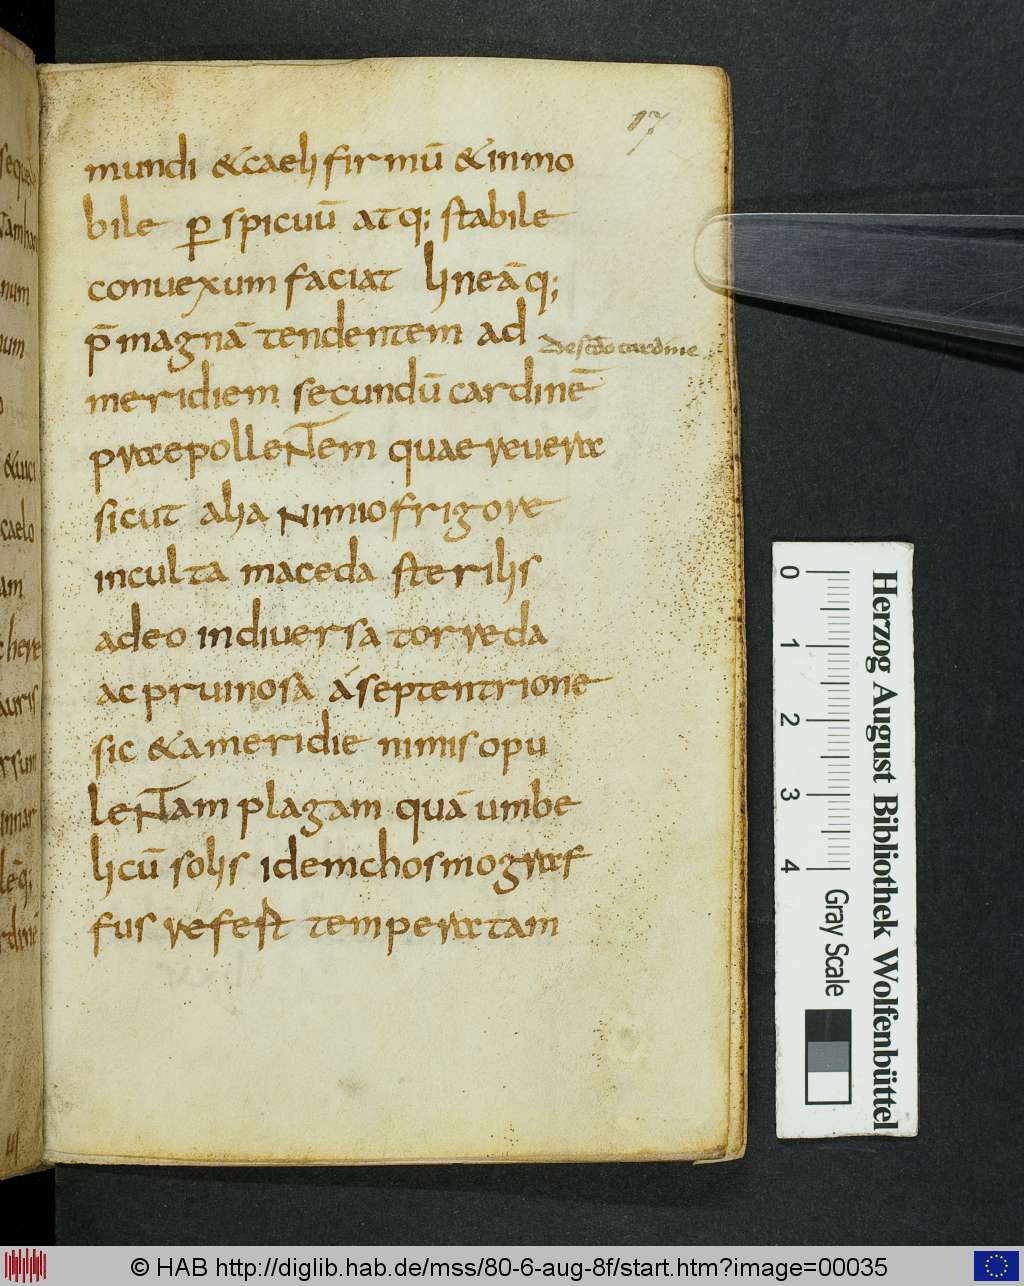 17
mundi &caeli firmū &inmo
bile ꝑspicuū atq; stabile
conuexum faciat lineāq;
p̄magnā tendentem ad
De scd̄o cardine
meridiem secundū cardinē
praepolleNTem quae reuera
sicut alia Nimio frigore
inculta maceda sterilis
adeo indiuersa torreda
ac pruinosa á septentrione
sic &ameridie nimis opu
leNTam plagam quā umbe
licū solis idem chosmograf
fus refest temperatam
0 1 2 3 4
Gray Scale
Herzog August Bibliothek Wolfenbüttel
© HAB http://diglib.hab.de/mss/80-6-aug-8f/start.htm?image=00035